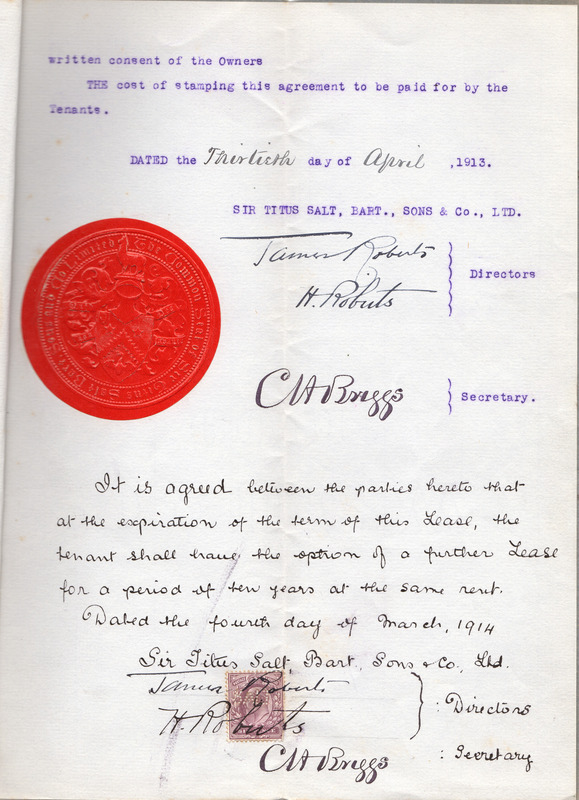 written consent of the Owners
THE cost of stamping this agreement to be paid for by the
Tenants.
DATED the Thirtieth day of April ,1913.
SIR TITUS SALT, BART., SONS & Co., LTD.
James Roberts
H. Roberts
Directors
The Common Seal of Sir Titus Salt Bart. Sons and Co Limited
C H Briggs
Secretary.
It is agreed between the parties hereto that
at the expiration of the term of this Lease, the
tenant shall have the option of a further Lease
for a period of ten years at the same rent.
Dated the fourth day of March, 1914
Sir Titus Salt, Bart, Sons & Co., Ltd.
James Roberts
H. Roberts
: Directors
C H Briggs
: Secretary